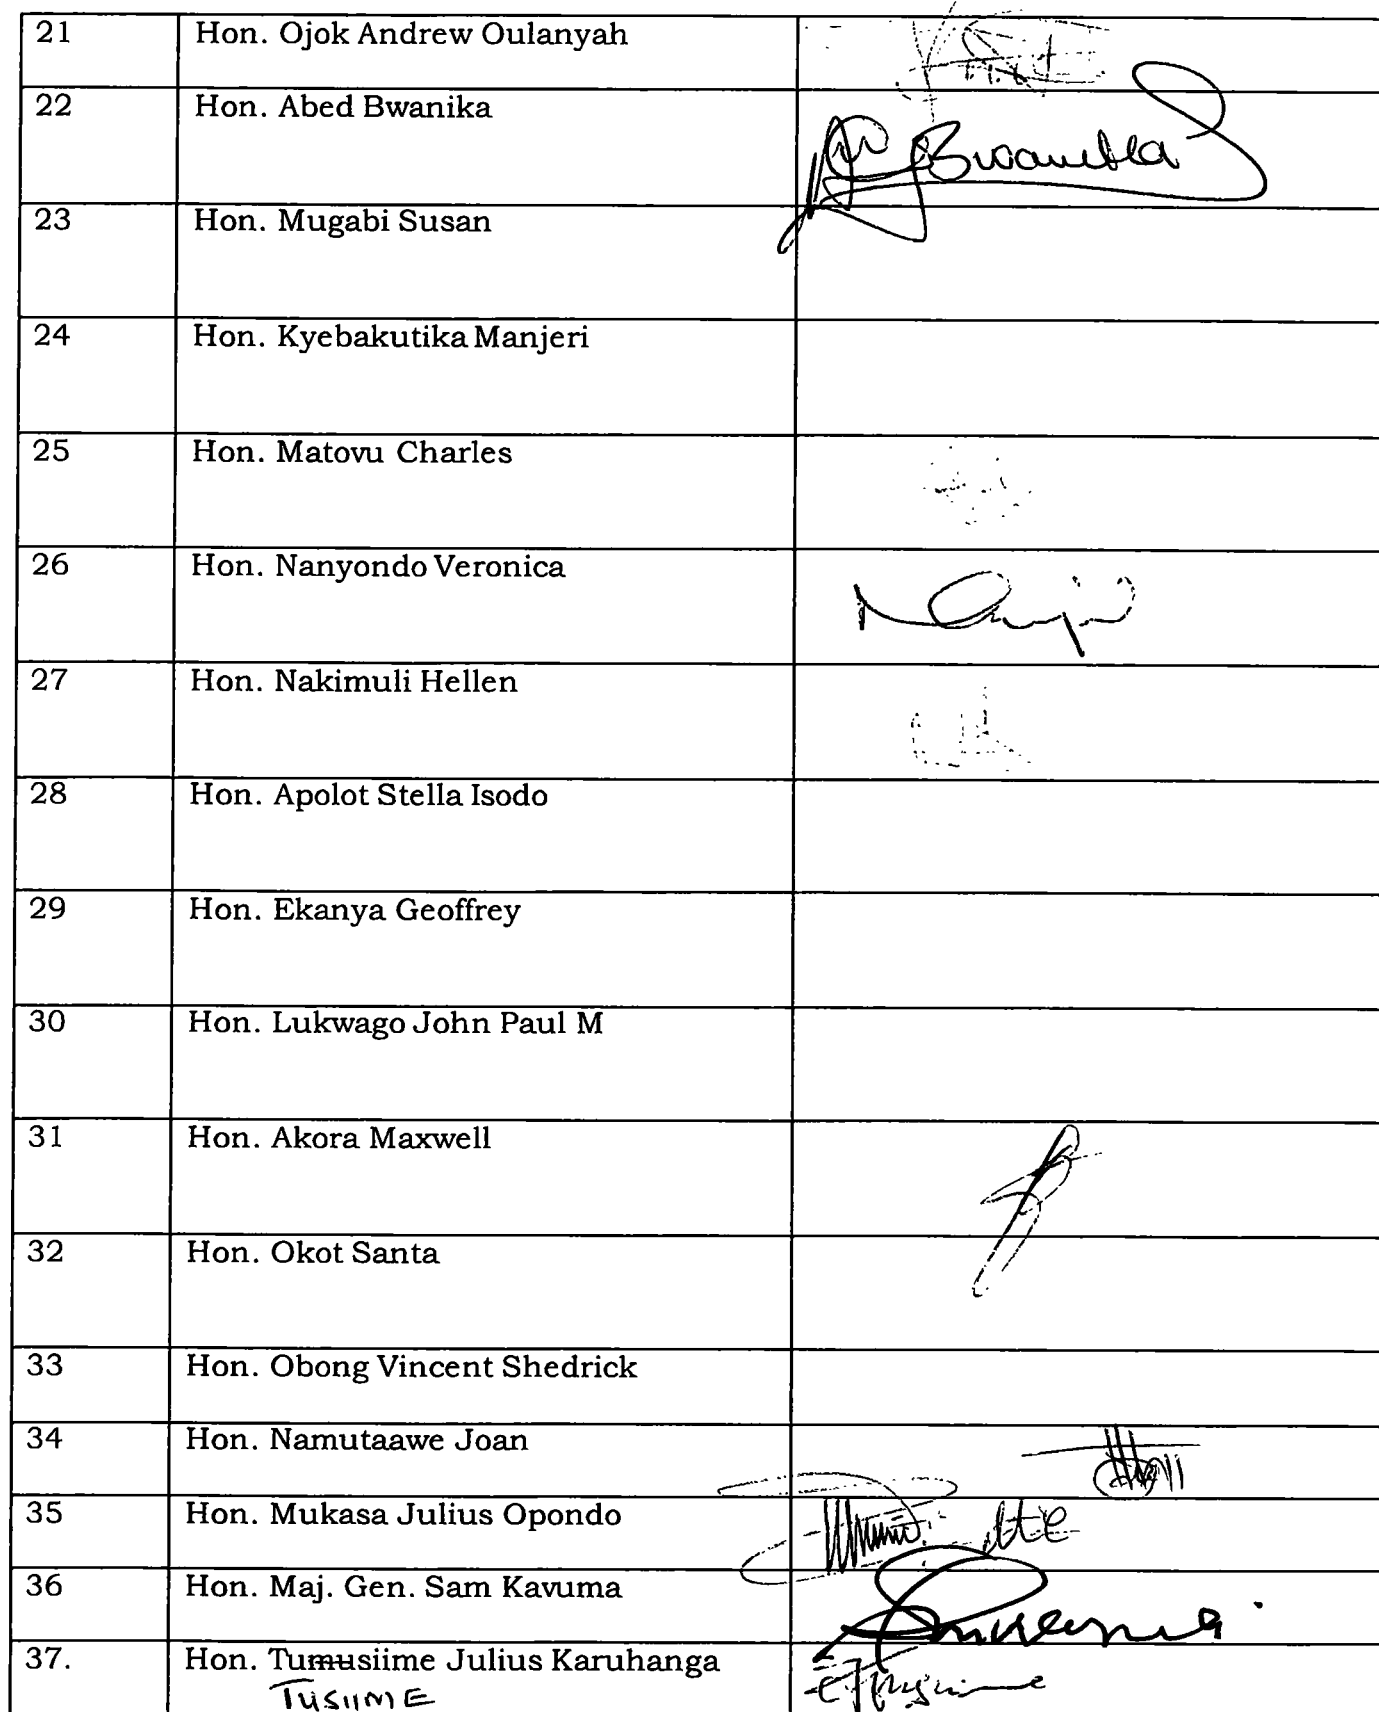 21 Hon. Ojok Andrew Oulanyah
22 Hon. Abed Bwanika Bwanika
23 Hon. Mugabi Susan
24 Hon. Kyebakutika Manjeri
25 Hon. Matovu Charles
26 Hon. Nanyondo Veronica
27 Hon. Nakimuli Hellen
28 Hon. Apolot Stella Isodo
29 Hon. Ekanya Geoffrey
30 Hon. Lukwago John Paul M
31 Hon. Akora Maxwell
32 Hon. Okot Santa
33 Hon. Obong Vincent Shedrick
34 Hon. Namutaawe Joan
35 Hon. Mukasa Julius Opondo
36 Hon. Maj. Gen. Sam Kavuma
37. Hon. Tumusiime Julius Karuhanga
TUSIIME